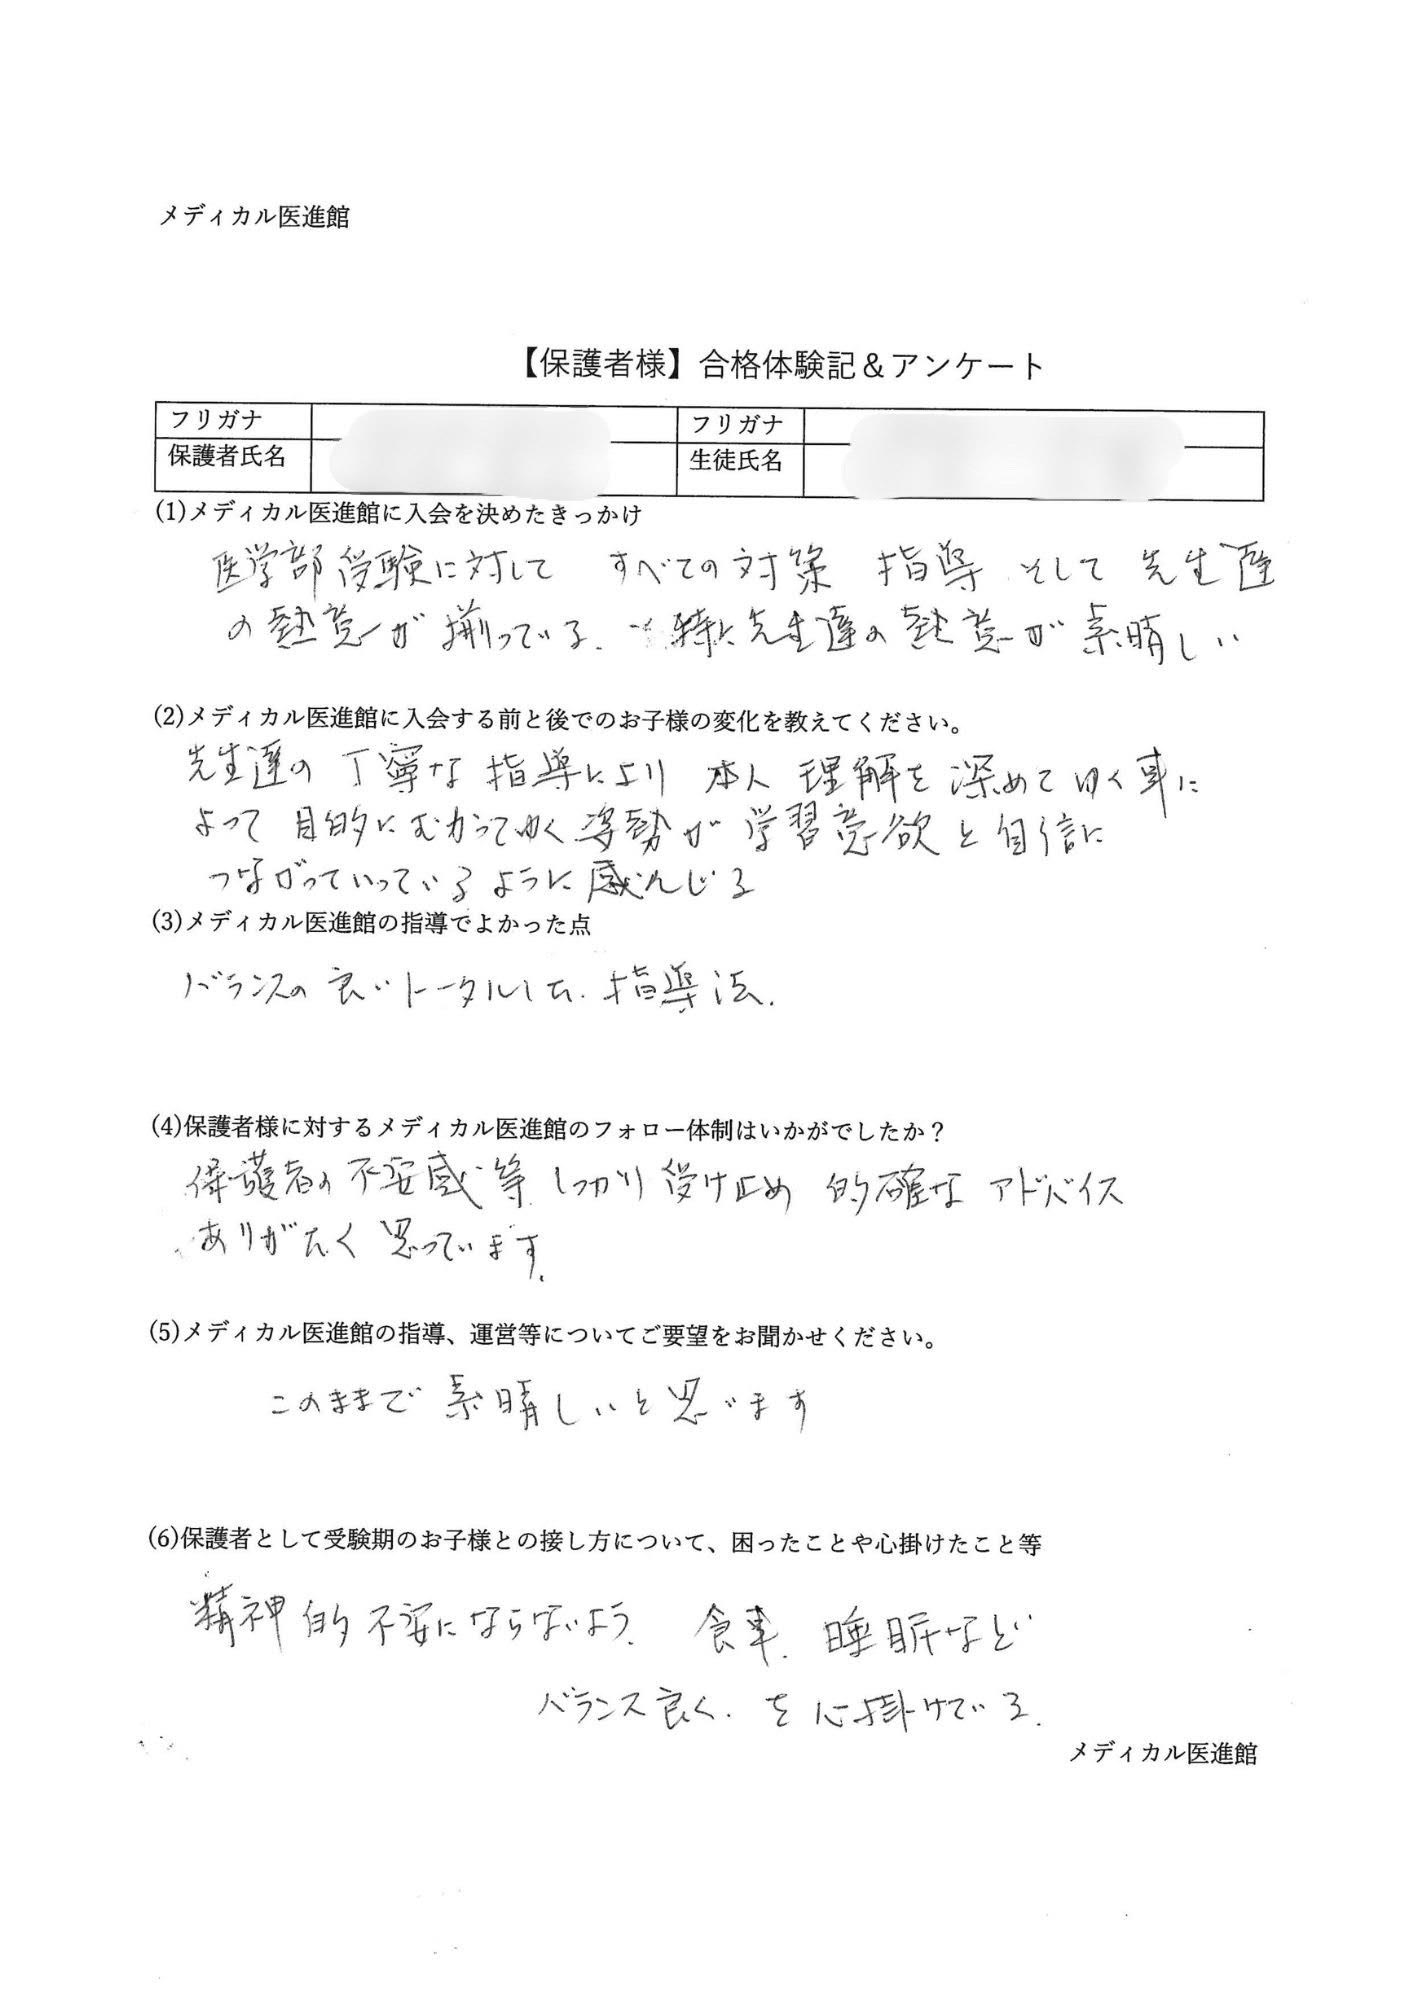 メディカル医進館
【保護者様】合格体験記＆アンケート
フリガナ フリガナ
保護者氏名 生徒氏名
(1)メディカル医進館に入会を決めたきっかけ
医学部受験に対して すべての対策 指導 そして 先生達
の熱意が揃っている. 特に先生達の熱意が素晴しい
(2)メディカル医進館に入会する前と後でのお子様の変化を教えてください。
先生達の丁寧な指導により 本人 理解を深めてゆく事に
よって 目的にむかってゆく姿勢が 学習意欲と自信に
つながっていっているように感んじる
(3)メディカル医進館の指導でよかった点
バランスの良いトータルした.指導法.
(4)保護者様に対するメディカル医進館のフォロー体制はいかがでしたか？
保護者の不安感等 しっかり受け止め 的確な アドバイス
ありがたく 思っています.
(5)メディカル医進館の指導、運営等についてご要望をお聞かせください。
このままで 素晴しいと思います
(6)保護者として受験期のお子様との接し方について、困ったことや心掛けたこと等
精神的不安にならないよう. 食事. 睡眠など
バランス良く. を心掛けている.
メディカル医進館